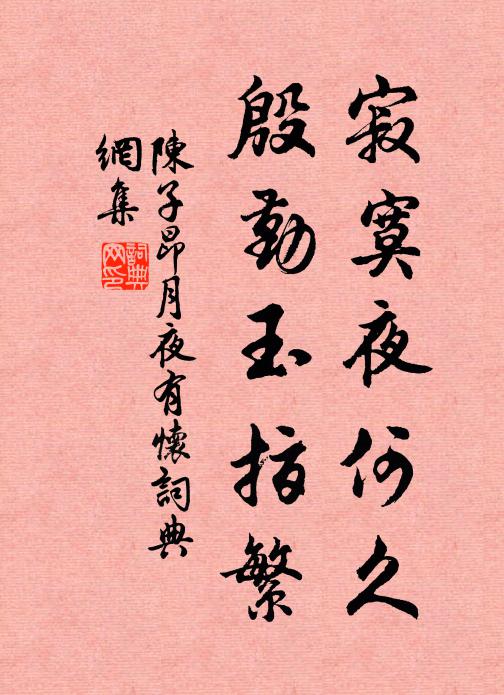 寂寞夜何久
殷勤玉指繁
陳子昂月夜有懷詞典
網集
詞典网印